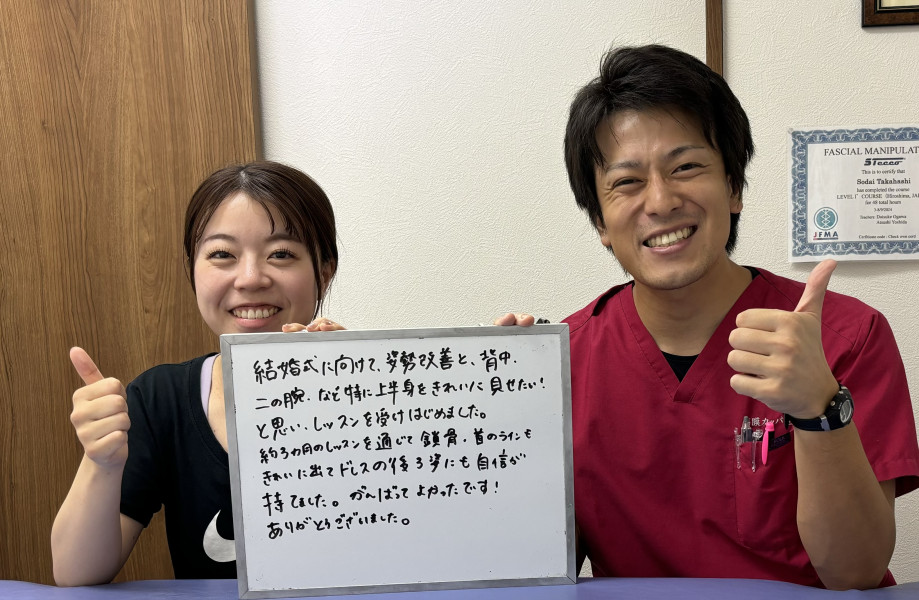 結婚式に向けて、姿勢改善と、背中・
二の腕、など特に上半身をきれいに見せたい!
と思い、レッスンを受けはじめました。
約3カ月のレッスンを通じて鎖骨・首のラインも
きれいに出てドレスの後ろ姿にも自信が
持てました。がんばってよかったです!
ありがとうございました。
FASCIAL MANIPULAT
STecco
This is to certify that
Sodai Takahashi
has completed the course
LEVEL I° COURSE (Hiroshima, JA
for 48 total hours
Teachers: Daisuke Ogawa
Atsushi Yoshida
JFMA